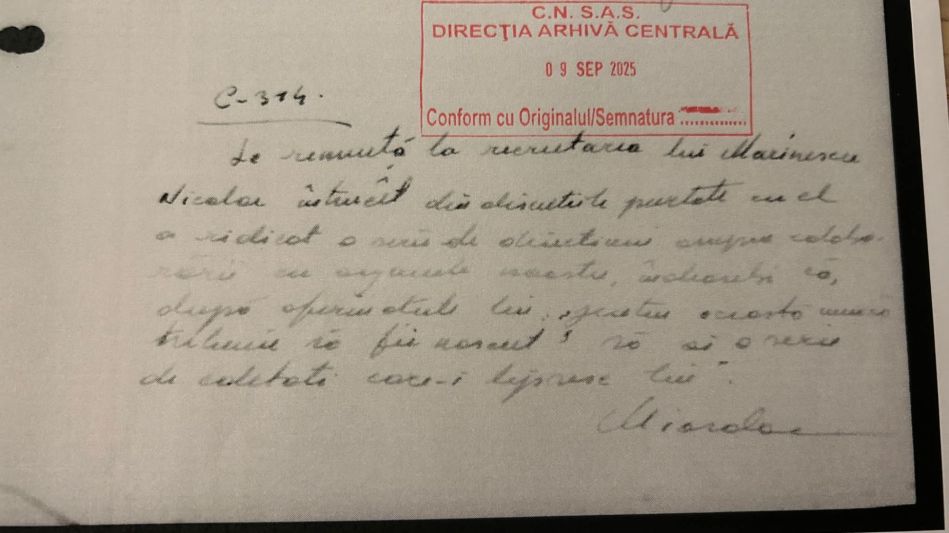 C.N. S.A.S.
DIRECŢIA ARHIVĂ CENTRALĂ
09 SEP 2025
Conform cu Originalul/Semnatura ..............
C-314.
Se renunță la recrutarea lui Marinescu
Nicolae întrucât din discuțiile purtate cu el
a ridicat o serie de asupra colabo-
rării cu organele noastre, îndeosebi că,
după lui, "pentru această muncă
trebuie să fii născut" să ai o serie
de calități care-i lipsesc lui".